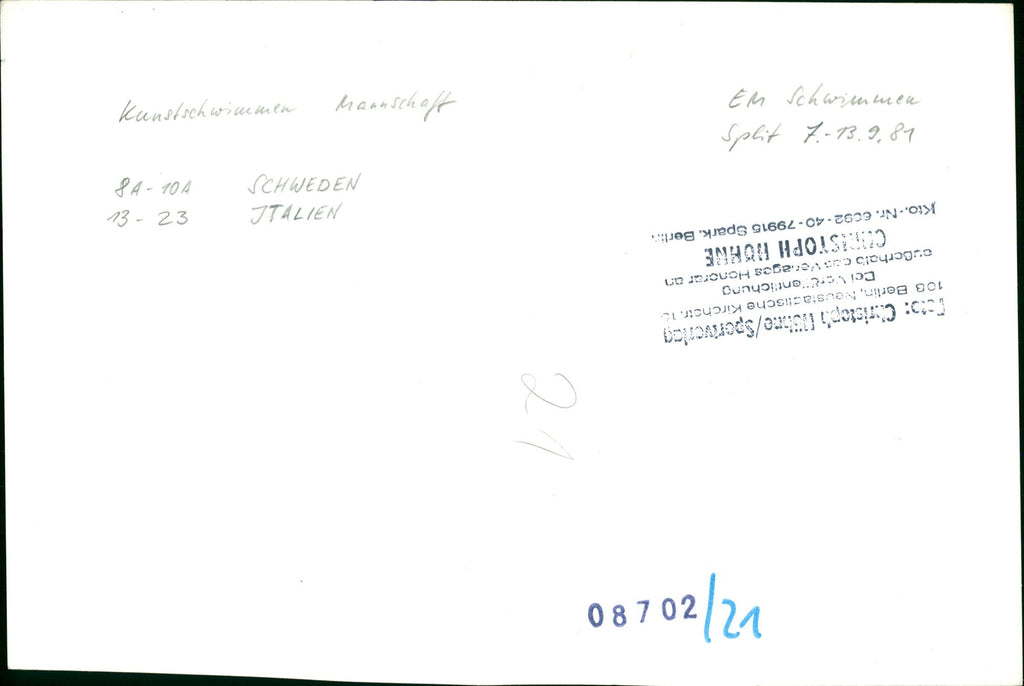 Kunstschwimmen Mannschaft
EM Schwimmen
Split 7.-13.9.81
8A-10A SCHWEDEN
13-23 ITALIEN
Foto: Christoph Höhne/Sportverlag
108 Berlin, Neustädtische Kirchstr. 15
Bei Veröffentlichung
außerhalb des Verlages Honorar an
CHRISTOPH HÖHNE
Kto.-Nr. 6692-40-79915 Spark. Berlin
21
08702/21